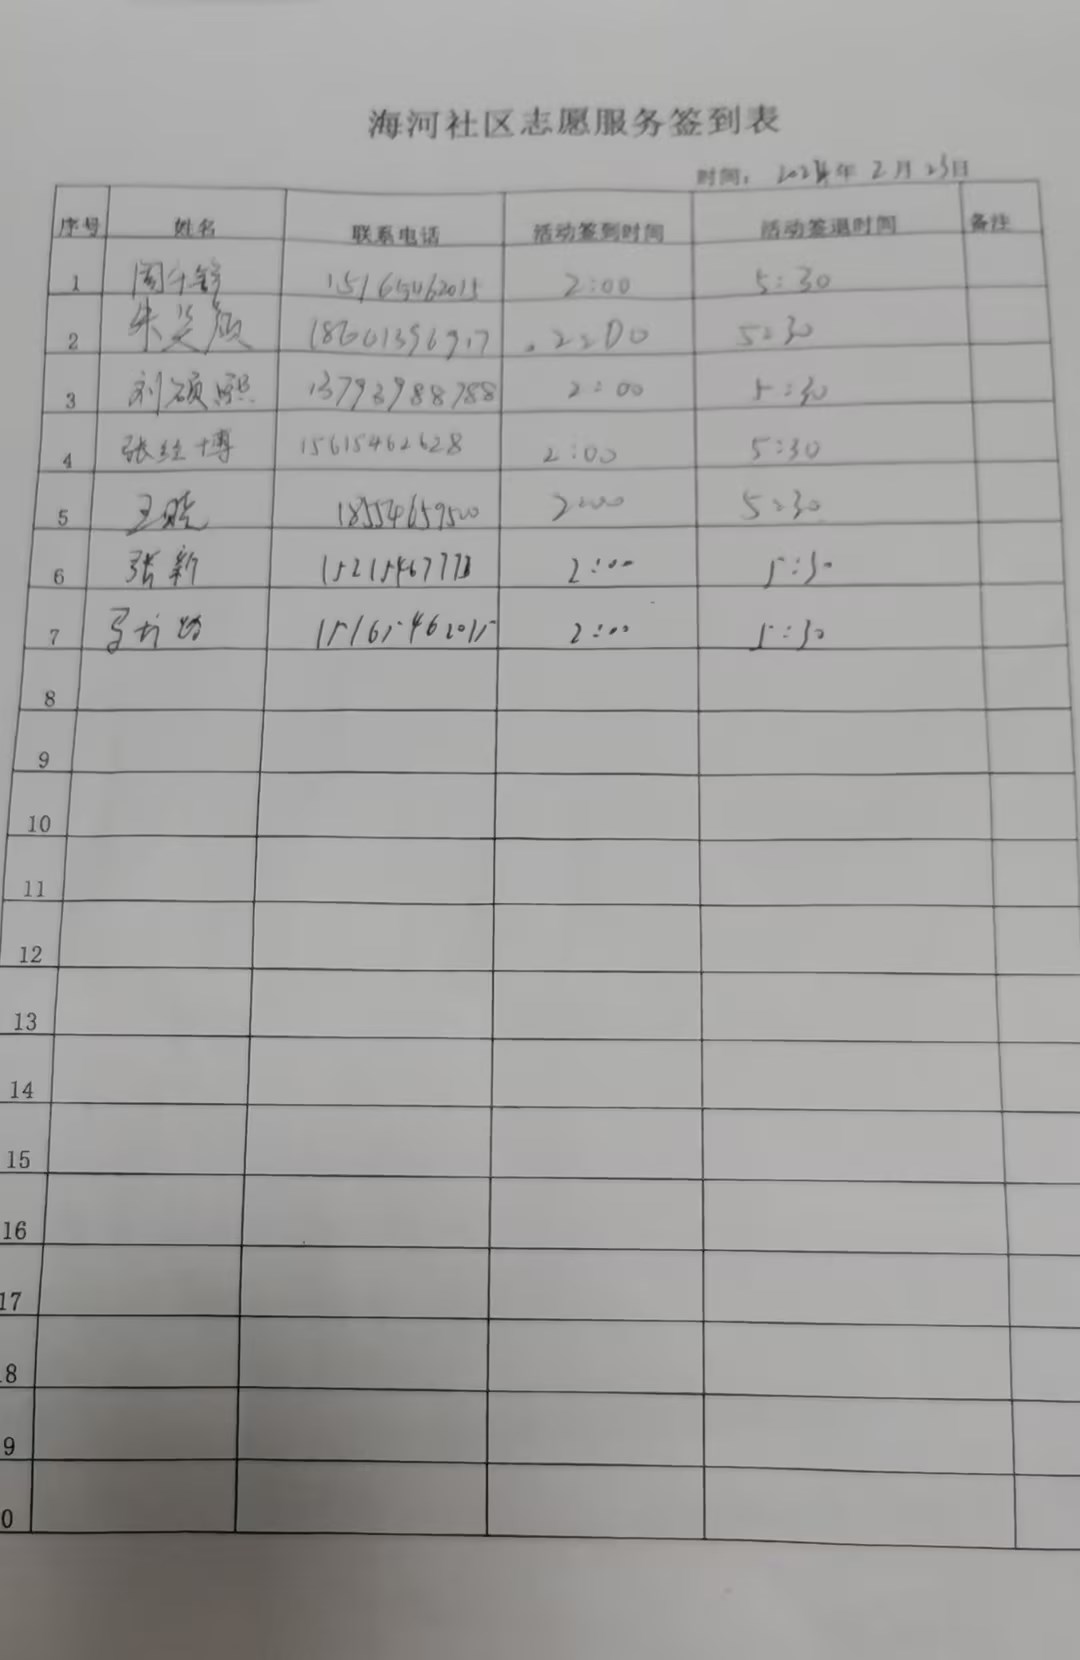 海河社区志愿服务签到表
时间： 2024年 2月 23日
序号 姓名 联系电话 活动签到时间 活动签退时间 备注
1 15165462015 2:00 5:30
2 朱 2:00 5:30
3 刘硕熙 13793988788 2:00 5:30
4 张经博 15615462628 2:00 5:30
5 王晓 18554659500 2:00 5:30
6 张新 2:00 5:30
7 15165462015 2:00 5:30
8
9
10
11
12
13
14
15
16
17
8
9
0